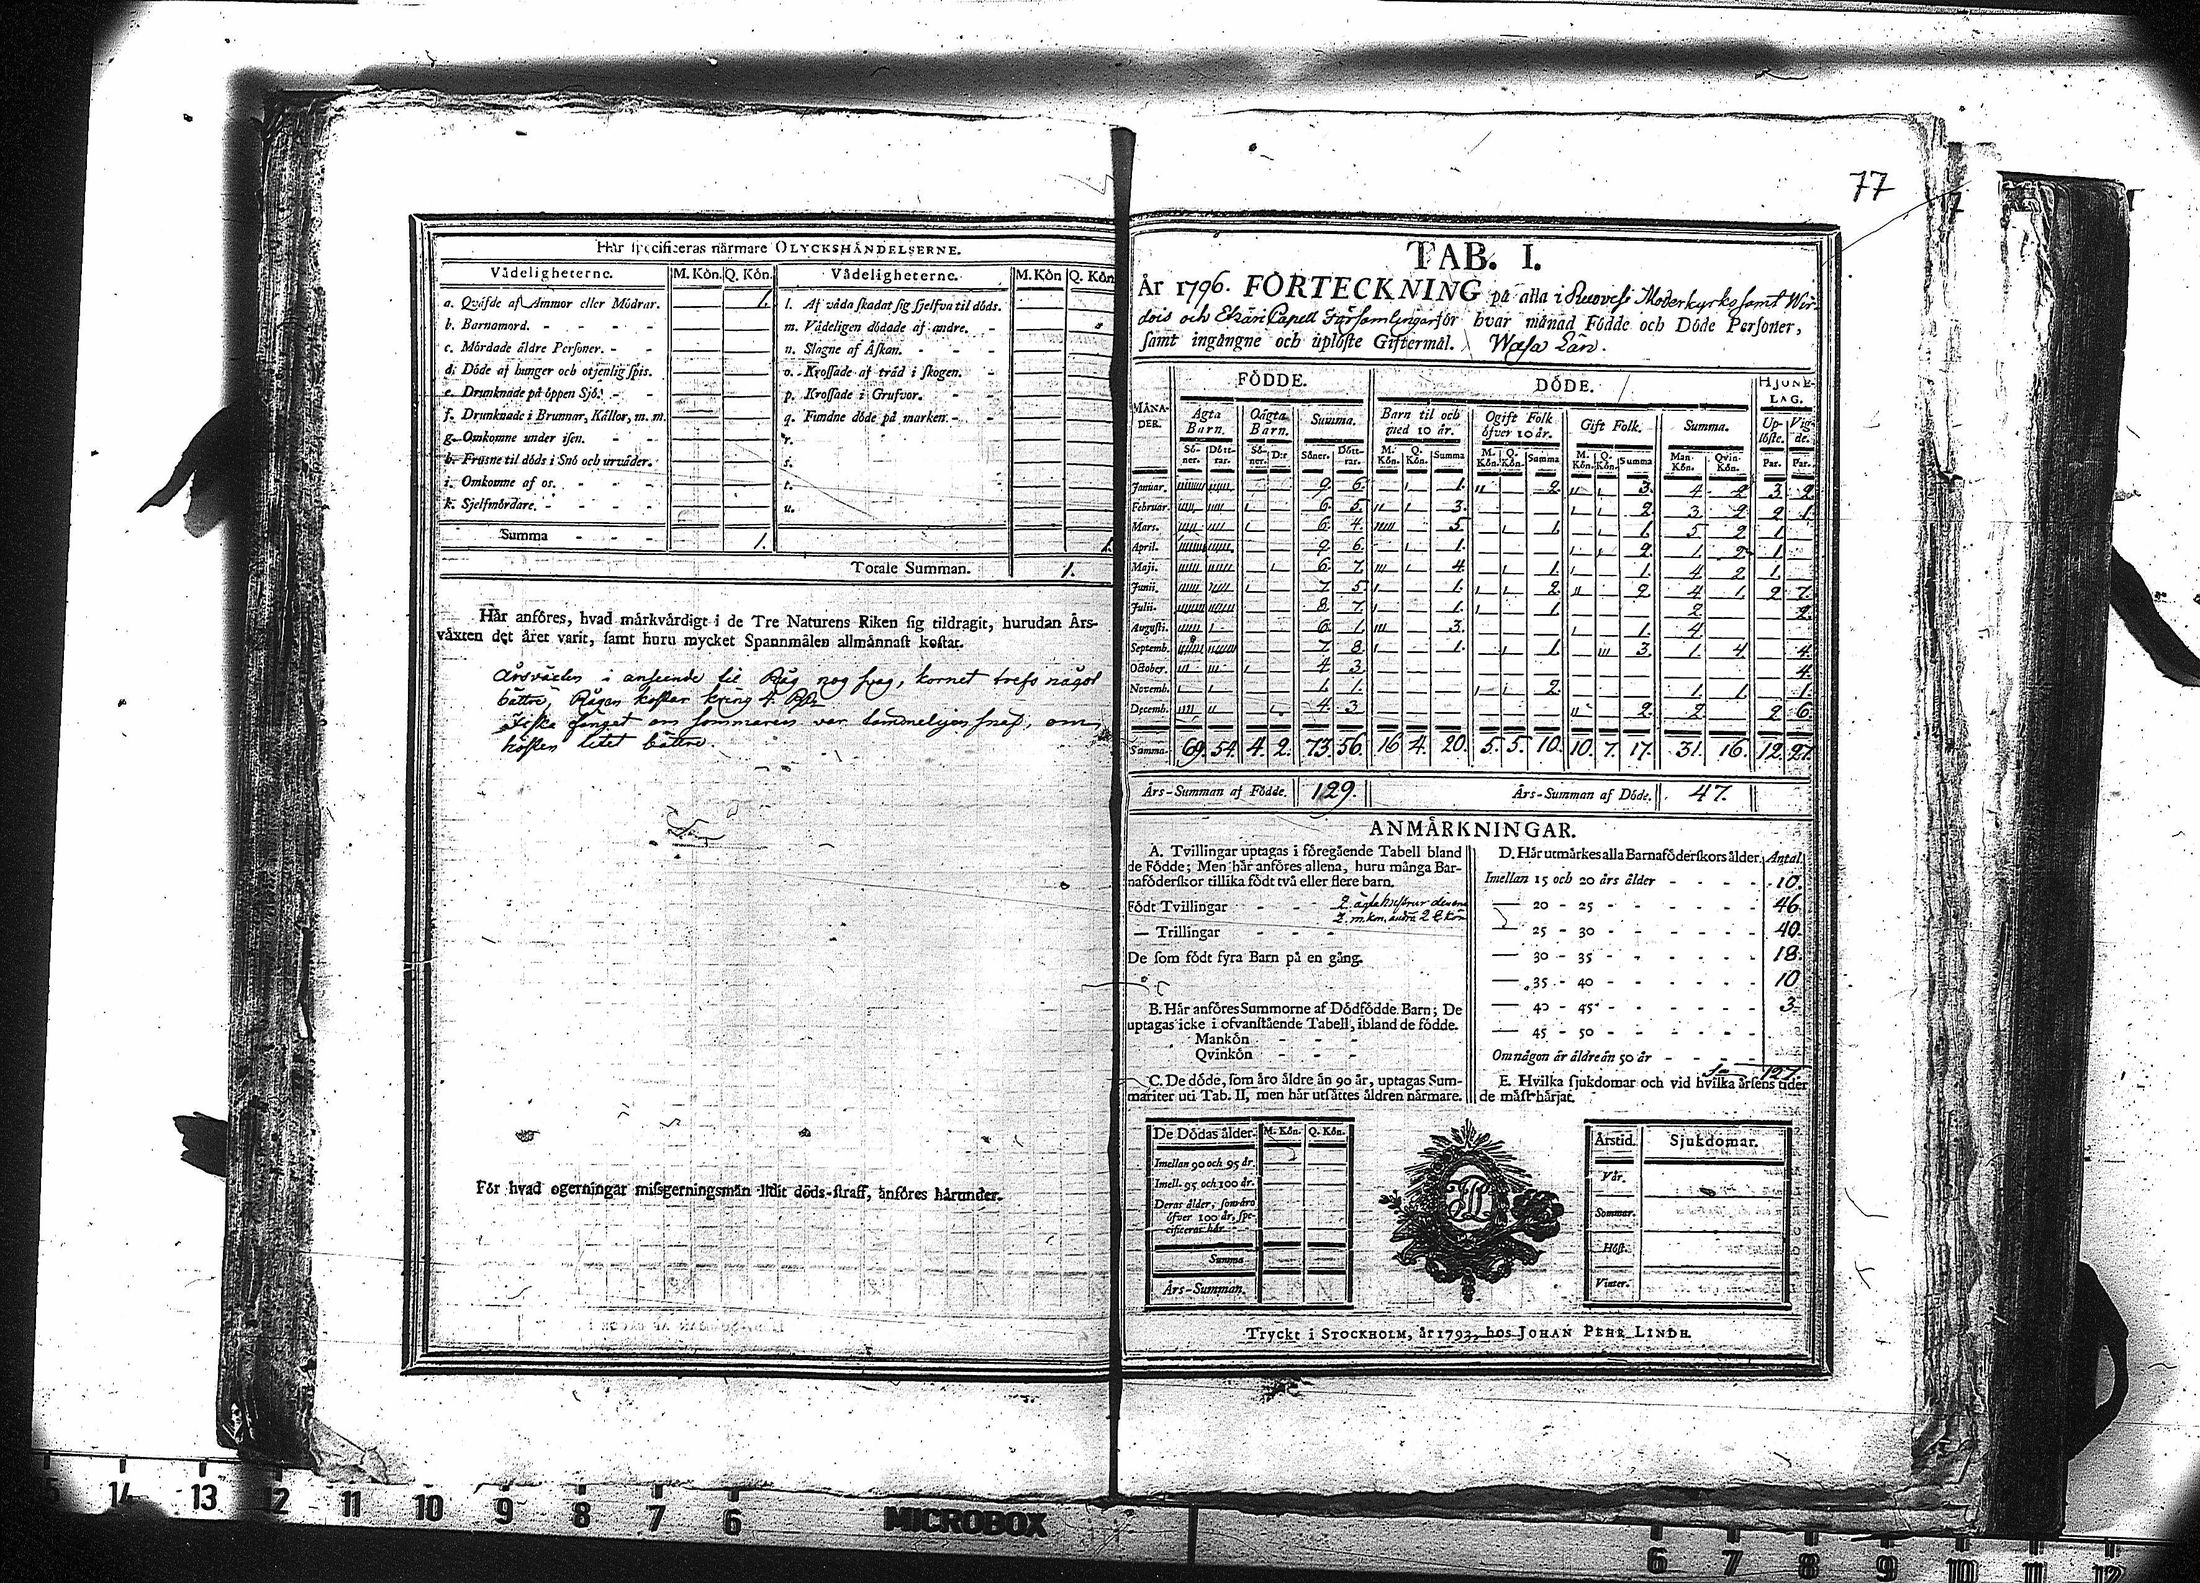 77
Hår specificeras närmare OLYCKSHÅNDELSERNE.
Vådeligheterne. M. Kön. Q. Kön. Vådeligheterne. M. Kön Q. Kön
a. Qväfde af Ammor eller Mödrar. 1. l. Af våda skadat sig sjelfva til döds.
b. Barnamord. m. Vådeligen dödade af andre.
c. Mördade äldre Personer. n. Slagne af Åskan.
d. Döde af hunger och otjenlig spis. o. Krossade af träd i skogen.
e. Drunknade på öppen Sjö. p. Krossade i Grufvor.
f. Drunknade i Brunnar, Källor, m. m. q. Fundne döde på marken.
g. Omkomne under isen. r.
h. Frusne til döds i Snö och urväder. s.
i. Omkomne af os. t.
k. Sjelfmördare. u.
Summa 1. 1.
Totale Summan. 1.
Hår anföres, hvad märkvärdigt i de Tre Naturens Riken sig tildragit, hurudan Års-
växten det året varit, samt huru mycket Spannmålen allmännast kostat.
Årsväxten i anseende til Råg nog svag, kornet trefs något
bättre, Rågen kostar kring 4 Rdr
Fiske fänget om sommaren var, om
hösten litet bättre.
För hvad ogerningar missgerningsmän lidit döds-straff, anföres härunder.
TAB. I.
År 1796. FÖRTECKNING på alla i Ruovesi Moderkyrko samt Wir-
dois och Etzäri Capell Församlingar för hvar månad Födde och Döde Personer,
samt ingångne och uplöste Giftermål. Wasa Län.
FÖDDE. DÖDE. HJONE-
LAG.
MÅNA-
DER. Ägta
Barn. Oägta
Barn. Summa. Barn til och
med 10 år. Ogift Folk
öfver 10 år. Gift Folk. Summa. Up-
löste. Vig-
de.
Sö-
ner. Dött-
rar. Sö-
ner. D:r Söner. Dött-
rar. M.
Kön. Q.
Kön. Summa M.
Kön. Q.
Kön. Summa M.
Kön. Q.
Kön. Summa Man-
Kön. Qvin-
Kön. Par. Par.
Januar. 9. 6. 1. 2. 3. 4. 2. 3. 2.
Februar. 6. 5. 3. 2. 3. 2. 2. 1.
Mars. 6. 4. 5. 1. 1. 5. 2. 1.
April. 9. 6. 1. 2. 1. 2. 1.
Maji. 6. 7. 4. 1. 1. 4. 2. 1.
Junii. 7. 5. 1. 2. 2. 4. 1. 2. 7.
Julii. 8. 7. 1. 1. 2. 2.
Augusti. 6. 1. 3. 1. 4.
Septemb. 7. 8. 1. 1. 3. 1. 4. 4.
October. 4. 3. 4.
Novemb. 1. 1. 2. 1. 1. 1.
Decemb. 4. 3. 2. 2. 2. 6.
Summa. 69. 54. 4. 2. 73. 56. 16 4. 20. 5. 5. 10. 10. 7. 17. 31. 16. 12. 27.
Års-Summan af Födde. 129. Års-Summan af Döde. 47.
ANMÅRKNINGAR.
A. Tvillingar uptagas i föregående Tabell bland
de Födde; Men här anföres allena, huru många Bar-
naföderskor tillika födt två eller flere barn.
Födt Tvillingar 2. ägta hustrur den ena
2. m. kön, andra 2 Q. kön
— Trillingar
De som födt fyra Barn på en gång.
B. Hår anföres Summorne af Dödfödde Barn; De
uptagas icke i ofvanstående Tabell, ibland de födde.
Mankön
Qvinkön
C. De döde, som äro äldre än 90 år, uptagas Sum-
mariter uti Tab. II, men här utsättes åldren närmare.
D. Hår utmärkes alla Barnaföderskors ålder. Antal.
Imellan 15 och 20 års ålder 10.
— 20 - 25 46
— 25 - 30 40.
— 30 - 35 18.
— 35 - 40 10
— 40 - 45 3.
— 45 - 50
Om någon är äldre än 50 år
127.
E. Hvilka sjukdomar och vid hvilka årsens tider
de mäst härjat.
De Dödas ålder. M. Kön. Q. Kön.
Imellan 90 och 95 år.
Imell. 95 och 100 år.
Deras ålder, som äro
öfver 100 år, spe-
cificeras här
Summa
Års-Summan.
Årstid. Sjukdomar.
Vår.
Sommar.
Höst.
Vinter.
Tryckt i STOCKHOLM, år 1793, hos JOHAN PEHR LINDH.
14 13 12 11 10 9 8 7 6 MICROBOX 6 7 8 9 10 11 12